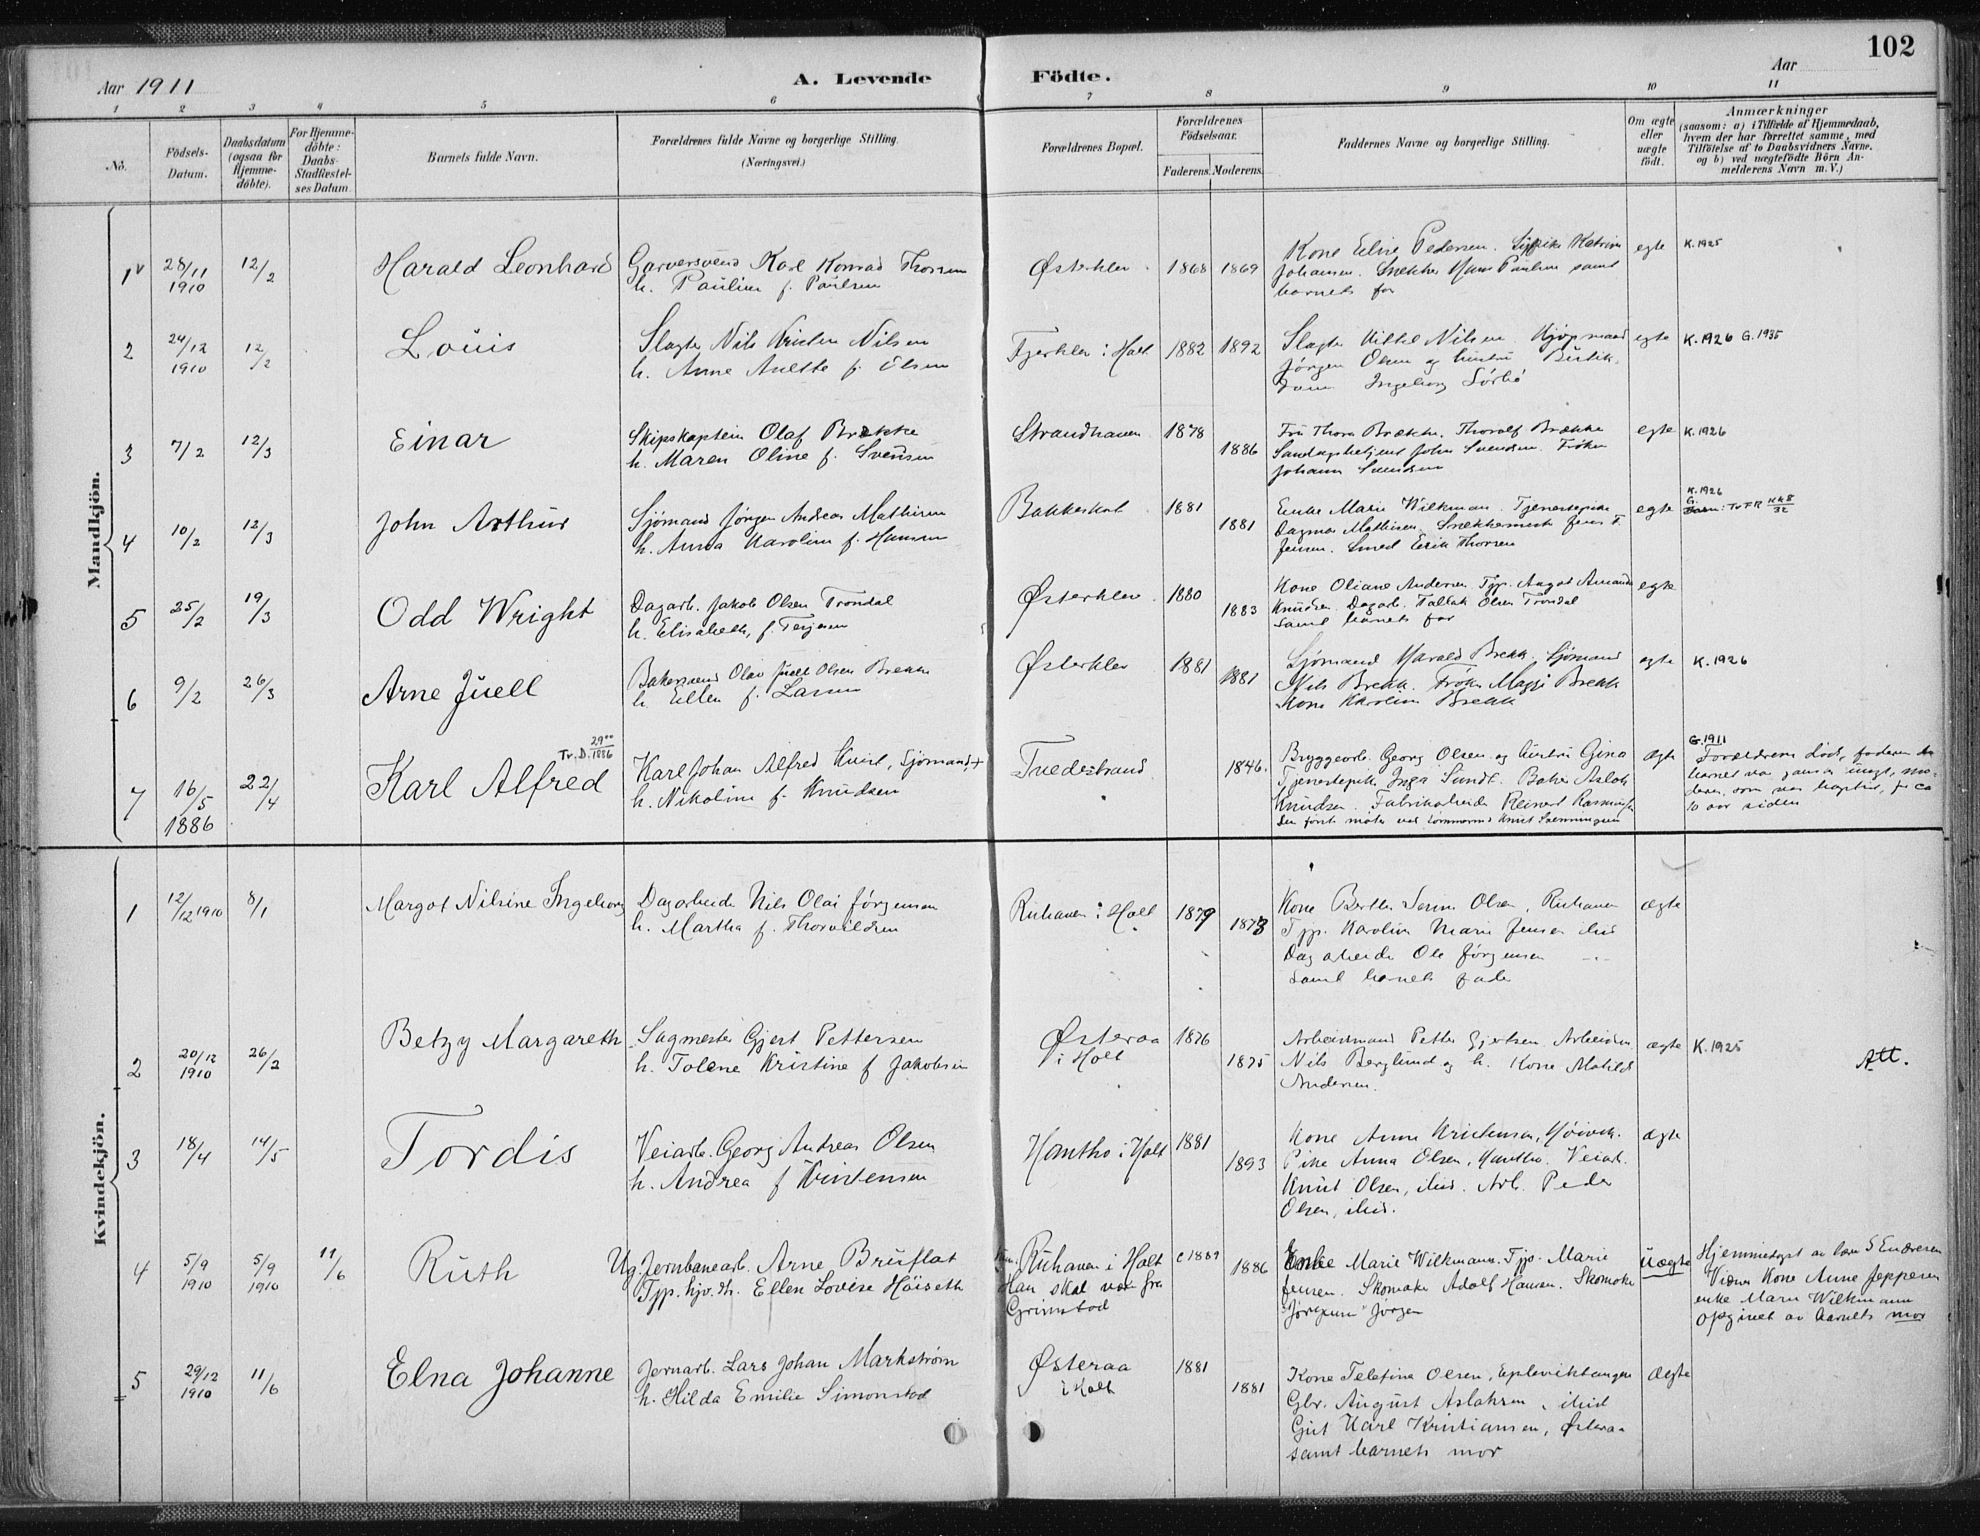 102
Aar 1911
A. Levende Födte.
Aar
1 2 3 4 5 6 7 8 9 10 11
No.
Födsels-
Datum.
Daabsdatum
(ogsaa for
Hjemme-
döbte).
For Hjemme-
döbte:
Daabs-
Stadfæstel-
ses Datum
Barnets fulde Navn.
Forældrenes fulde Navne og borgerlige Stilling.
(Næringsvei.)
Forældrenes Bopæl.
Forældrenes
Födselsaar.
Faderens. Moderens.
Faddernes Navne og borgerlige Stilling.
Om ægte
eller
uægte
födt.
Anmærkninger
(saasom: a) i Tilfælde af Hjemmedaab,
hvem der har forrettet samme, med
Tilföielse af to Daabsvidners Navne.
og b) ved uægtefödte Börn An-
melderens Navn m. V.)
Mandkjön.
1 28/11 1910 12/2 Harald Leonhard
Garversvend Karl Konrad Thorsen
h. Pauline f. Paulsen
Østerklev 1868 1869
Kone Elise Pedersen. Katrine
Johansen. Snekker Hans Paulsen samt
barnets far
egte K. 1925
2 24/12 1910 12/2 Louis
Slagter Nils Kristen Nilsen
h. Anne Anette f. Olsen
Fjerklev i Holt 1882 1892
Slagter Nilsen Kjøpmand
Jørgen Olsen og hustru Butik-
dame Ingeborg Sørbø
egte K. 1926 G. 1935
3 7/2 12/3 Einar
Skipskaptein Olaf Brække
h. Maren Oline f. Svensen
Strandhaven 1878 1886
Fru Thora Brække. Thoralf Brække
John Svendsen. Frøken
Johanna Svendsen
egte K. 1926
4 10/2 12/3 John Arthur
Sjømand Jørgen Andreas Mathisen
h. Anna Karoline f. Hansen
Bakkeskot 1881 1881
Enke Marie Wilkman. Tjenestepike
Dagmar Mathisen. Snekkermester Jens T.
Jensen. Smed Erik Thorsen
egte K. 1926
G.
Tr FR KK8/32
5 25/2 19/3 Odd Wright
Dagarb. Jakob Olsen Trondal
h. Elisabeth, f. Terjesen
Østerklev 1880 1883
Kone Oliane Andersen Tjp. Aagot Amanda
Knudsen. Dagarb. Tallak Olsen Trondal
samt barnets far
egte
6 9/2 26/3 Arne Juell
Bakersvend Olav Juell Olsen Brekke
h. Ellen f. Larsen
Østerklev 1881 1881
Sjømand Harald Brekk. Sjømand
Nils Brekk. Frøken Maggi Brekk
Kone Karoline Brekk
egte K. 1926
7 16/5 1886 22/4 Tr. D. 2900/1886
Karl Alfred
Karl Johan Alfred Knut, Sjømand +
h. Nikoline f. Knudsen
Tvedestrand 1846.
Bryggearb. Georg Olsen og hustru Gina
Tjenestepik Inga Sundt. Baker Aslak
Knudsen. Fabrikarbeider Reinert Rasmussen
Den første møter ved tømmermand Knut Svenningsen
ægte G. 1911
Forældrene død, faderen da
barnet var ganske ungt, mo-
deren, som var baptist, for ca
10 aar siden
Kvindekjön.
1 12/12 1910 8/1 Margot Nilsine Ingeborg
Dagarbeider Nils Olai Jørgensen
h. Martha f. Thorvaldsen
Ruhaven i Holt 1879 1873
Kone Berthe Serine Olsen, Ruhaven
Tjp. Karoline Marie Jensen ibid
Dagarbeider Ole Jørgensen
samt barnets fader
ægte
2 20/12 1910 26/2 Betzy Margareth
Sagmester Gjert Pettersen
h. Tolene Kristine f Jakobsen
Østeraa
i Holt 1876 1875
Arbeidsmand Petter Gjertsen Arbeidsm.
Nils Berglund og h. Kone Matilde
Andersen.
ægte K. 1925 Att.
3 18/4 14/5 Tordis
Veiarb. Georg Andreas Olsen
h. Andrea f Kristensen
Hantho i Holt 1881 1893
Kone Anne Kristensen,
Pike Anna Olsen, Hantho. Veiarb.
Knut Olsen, ibid. Arb. Peder
Olsen, ibid.
ægte
4 5/9 1910 5/9 1910 11/6 Ruth
Ug. Jernbanearb. Arne Brusflat
Tjp. hjv. th. Ellen Lovise Höiseth
Ruhaven i Holt
Han skal være fra
Grimstad
c 1889 1886
Enke Marie Wilkmann. Tjp. Marie
Jensen. Skomaker Adolf Hansen. Skomaker
Jørgen
uægte
Hjemmedøpt av S Endresen
Vidner Kone Anne Jeppesen
enke Marie Wilkmann
opgivet av barnets mor
5 29/12 1910 11/6 Elna Johanne
Jernarb. Lars Johan Markström
h. Hilda Emilie Simonstad
Østeraa
i Holt 1881 1881
Kone Telefina Olsen, Eplevik
Gbr. August Aslaksen, ibid
Gut Karl Kristiansen, Østeraa
samt barnets mor
Ægte